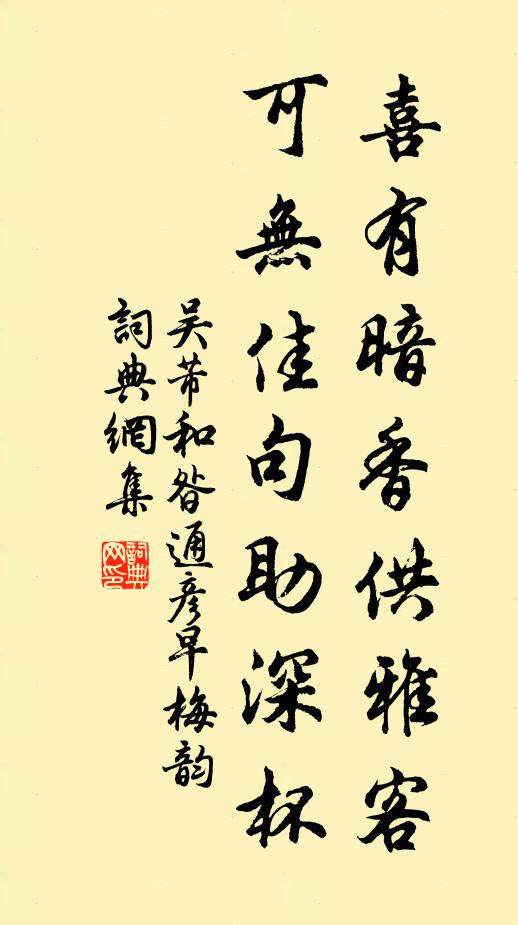 喜有暗香供雅客
可無佳句助深杯
吴芾和昝通彦早梅韵
詞典網集
詞典网印